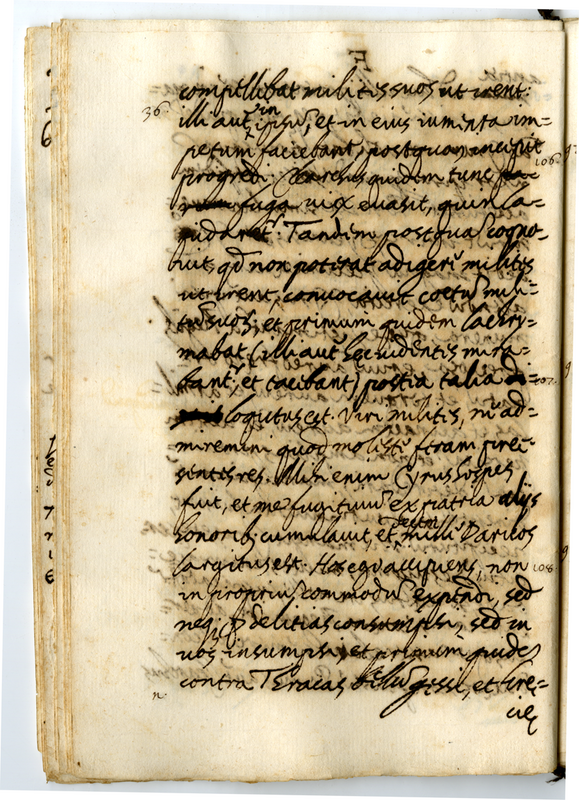 compellibat milites suos ut irent:
36. illi aut in ipsū, et in eius iumenta im=
petum faciebant, postquam incepit
progredi. Clearchus quidem tunc
fuga vix evasit, quin la=
pidaret. Tandem postqua cogno=
vit, qd non poterat adigere milites
ut irent, convocavit coetū mili=
tū suos, et primum quidem lachry=
mabat (illi aut hec videntes mira=
bant, et tacebant) postea talia
logutus est. Viri milites, ne ad=
miremini quod moleste feram pre=
sentes res. Mihi enim Cyrus hospes
fuit, et me fugitivū ex patria alijs
honorib, cumulavit, et decem mille Daricos
largitus est. Hos ego accipiens, non
in propriū commodū expendi, sed
neq; delitias consumpsi, sed in
vos insumpsi, et primum quide
contra Thracas bellū gessi, et Gre=
cie